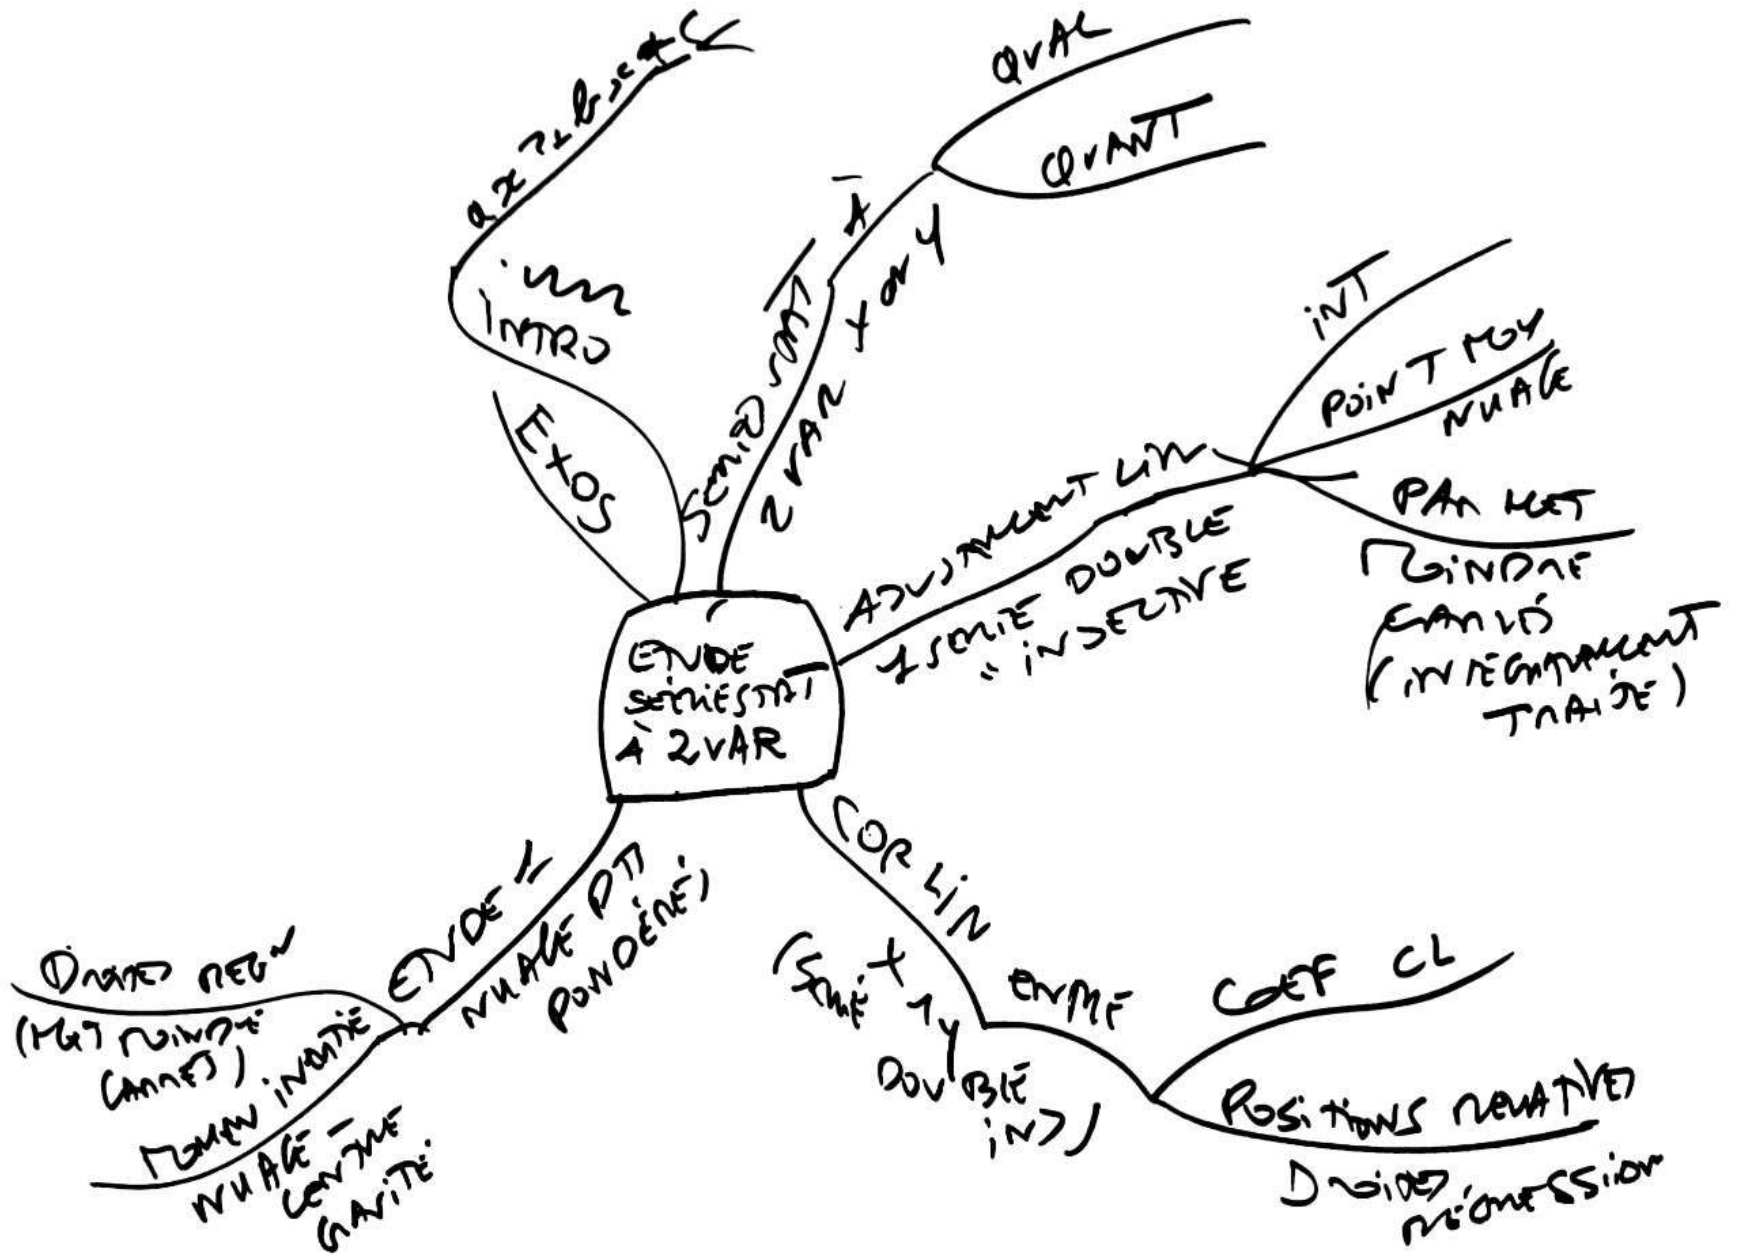 ETUDE
SERIESTAT
À 2VAR
INTRO
EXOS
SERIE STAT À
2 VAR X OU Y
QUAL
QUANT
AJUSTEMENT LIN
1 SERIE DOUBLE
INJECTIVE
INT
POINT MOY
NUAGE
PAR MET
MOINDRE
CARRÉS
(INTEGRALEMENT
TRAITÉ)
COR LIN
(SÉRIE X, Y
DOUBLE
INJ)
ENTRE
COEF CL
POSITIONS RELATIVES
DROITES
RÉGRESSION
ETUDE 1
NUAGE PTT
PONDÉRÉ)
DROITES REGR
(MET MOINDRE
CARRES)
MOMEN INERTIE
NUAGE -
CENTRE
GRAVITÉ